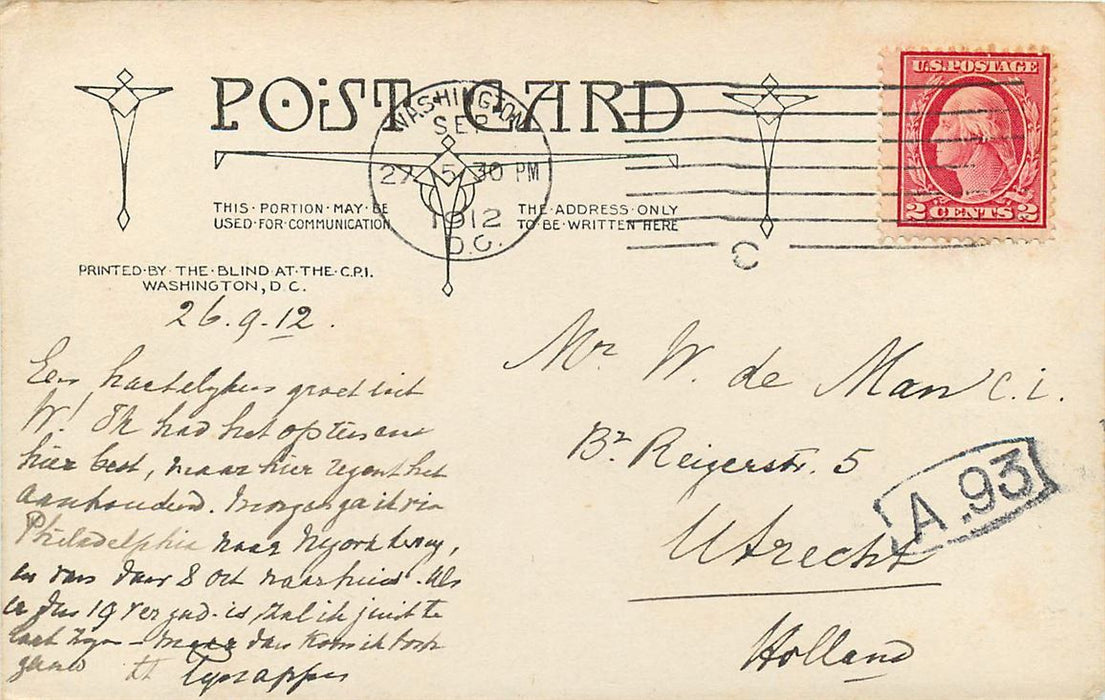 POST CARD
U.S. POSTAGE
2 CENTS 2
WASHINGTON
SEP
27 5 30 PM
1912
D.C.
C
THIS·PORTION·MAY·BE
USED·FOR·COMMUNICATION
THE·ADDRESS·ONLY
TO·BE·WRITTEN HERE
PRINTED·BY·THE·BLIND AT·THE·C.P.I.
WASHINGTON, D C.
26.9.12.
Een hartelyken groet uit
W! Ik had het op reis en
hier best, maar hier regent het
aanhoudend. Morgen ga ik via
Philadelphia naar NYork terug,
en dan daar 8 Oct naar huis. Als
er dus 19 vergad. is, zal ik juist te
laat zyn — maar dan kom ik toch
Mr W. de Man c.i.
Br. Reigerstr. 5
Utrecht
Holland
A.93